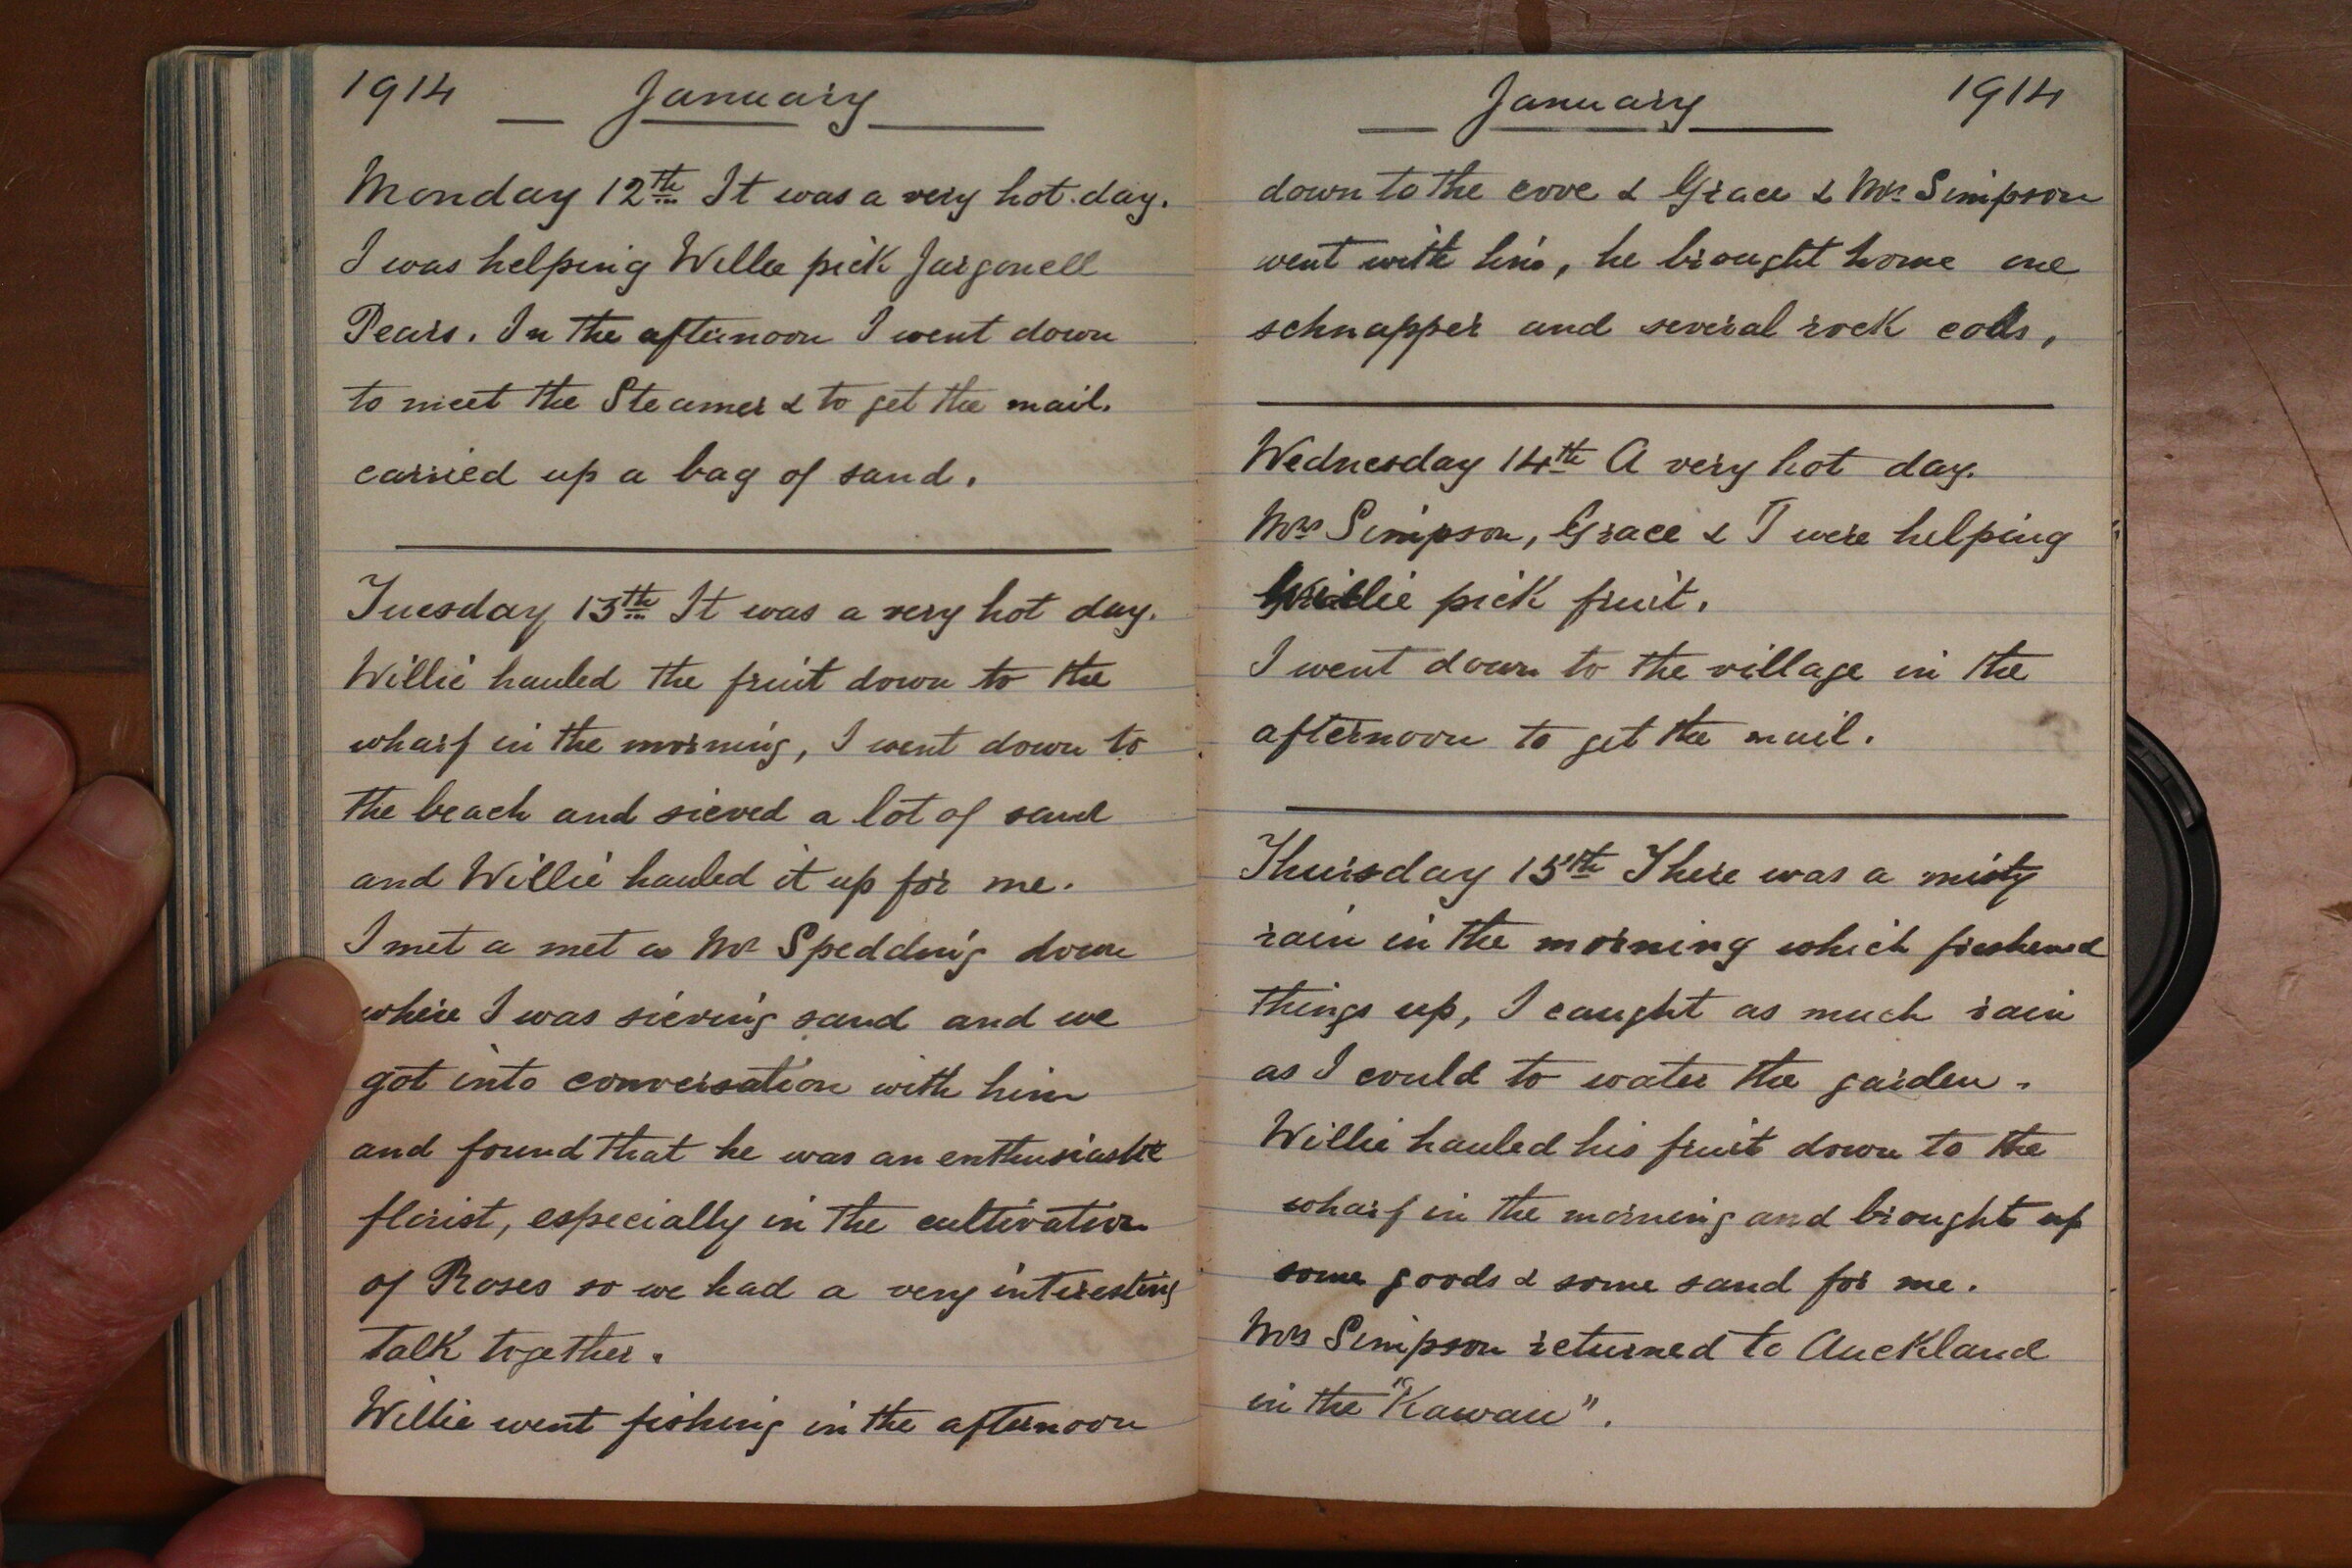 1914 January
Monday 12th It was a very hot day.
I was helping Willie pick Jargonell
Pears. In the afternoon I went down
to meet the Steamer & to get the mail.
carried up a bag of sand.
Tuesday 13th It was a very hot day.
Willie hauled the fruit down to the
wharf in the morning, I went down to
the beach and sieved a lot of sand
and Willie hauled it up for me.
I met a met a Mr Spedding down
where I was sieving sand and we
got into conversation with him
and found that he was an enthusiastic
florist, especially in the cultivation
of Roses so we had a very interesting
talk together.
Willie went fishing in the afternoon
January 1914
down to the cove & Grace & Mrs Simpson
went with him, he brought home one
schnapper and several rock cods,
Wednesday 14th A very hot day.
Mrs Simpson, Grace & I were helping
Willie pick fruit.
I went down to the village in the
afternoon to get the mail.
Thursday 15th There was a misty
rain in the morning which freshened
things up, I caught as much rain
as I could to water the garden.
Willie hauled his fruit down to the
wharf in the morning and brought up
some goods & some sand for me.
Mrs Simpson returned to Auckland
in the "Kawau".